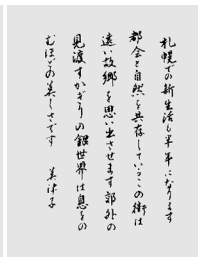 札幌での新生活も半年になります
都会と自然を共存しているこの街は
遠い故郷を思い出させます郊外の
見渡すかぎりの銀世界は息をの
むほどの美しさです 美津子